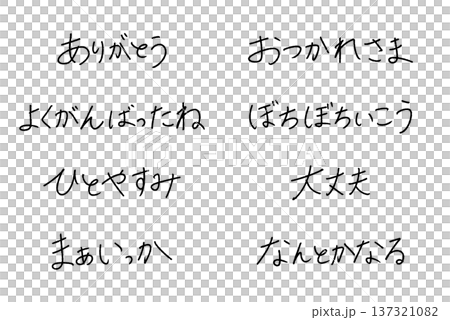 ありがとう
おつかれさま
よくがんばったね
ぼちぼちいこう
ひとやすみ
大丈夫
まぁいっか
なんとかなる
PIXTA
pixta.jp - 137321082